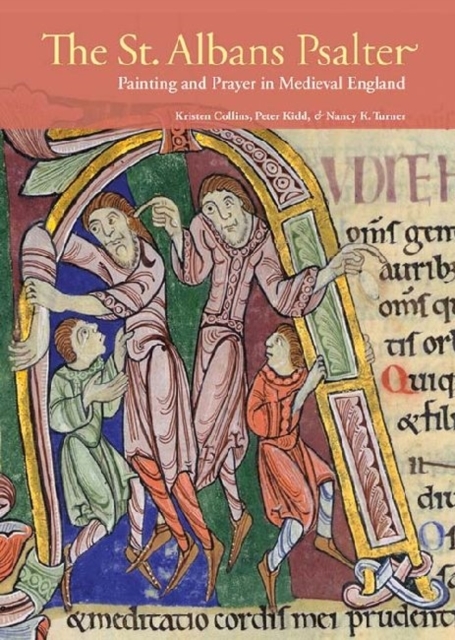 The St. Albans Psalter
Painting and Prayer in Medieval England
Kristen Collins, Peter Kidd, & Nancy K. Turner
VDITE H
om̄s gen
aurib;
om̄s q
tis or
Quiq
&fili
diu
Os
sa
&meditatio cordis mei prudent